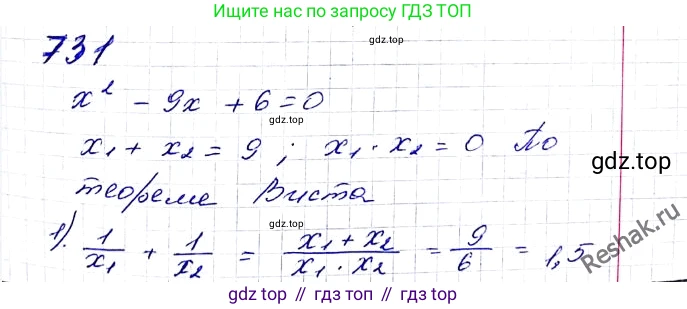 Ищите нас по запросу ГДЗ ТОП
731
gdz.top
x² - 9x + 6 = 0
gdz.top
x₁ + x₂ = 9 ; x₁ · x₂ = 0 По
gdz.top
теореме Виета
gdz.top
1). 1/x₁ + 1/x₂ = (x₁ + x₂)/(x₁ · x₂) = 9/6 = 1,5
Reshak.ru
gdz top // гдз топ // gdz.top